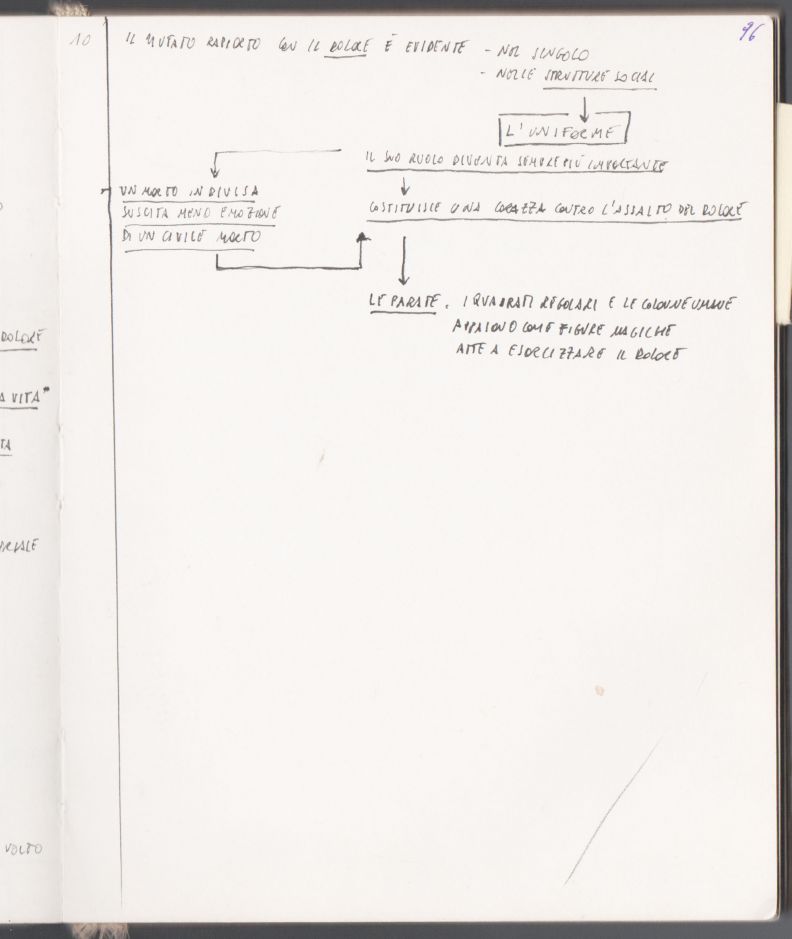 96
10
IL MUTATO RAPPORTO CON IL DOLORE È EVIDENTE - NEL SINGOLO
- NELLE STRUTTURE SOCIALI
L'UNIFORME
IL SUO RUOLO DIVENTA SEMPRE PIÙ IMPORTANTE
UN MORTO IN DIVISA
SUSCITA MENO EMOZIONE
DI UN CIVILE MORTO
COSTITUISCE UNA CORAZZA CONTRO L'ASSALTO DEL DOLORE
LE PARATE. I QUADRATI REGOLARI E LE COLONNE UMANE
APPAIONO COME FIGURE MAGICHE
ATTE A ESORCIZZARE IL DOLORE
DOLORE
A VITA"
TA
VOLTO